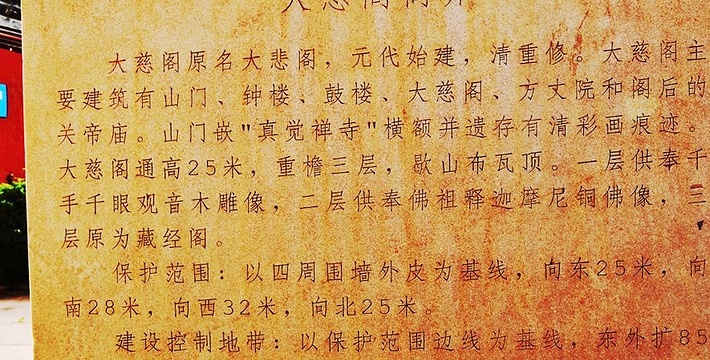 大慈阁简介
大慈阁原名大悲阁，元代始建，清重修。大慈阁主
要建筑有山门、钟楼、鼓楼、大慈阁、方丈院和阁后的
关帝庙。山门嵌"真觉禅寺"横额并遗存有清彩画痕迹。
大慈阁通高25米，重檐三层，歇山布瓦顶。一层供奉千
手千眼观音木雕像，二层供奉佛祖释迦摩尼铜佛像，三
层原为藏经阁。
保护范围：以四周围墙外皮为基线，向东25米，向
南28米，向西32米，向北25米。
建设控制地带：以保护范围边线为基线，东外扩85